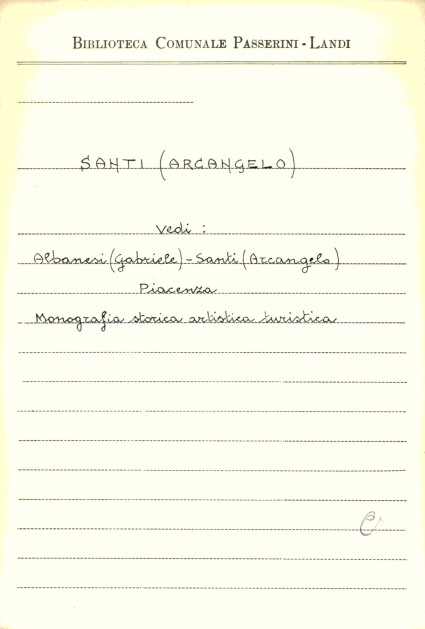 BIBLIOTECA COMUNALE PASSERINI - LANDI
SANTI (ARCANGELO)
Vedi :
Albanesi (Gabriele) - Santi (Arcangelo)
Piacenza
Monografia storica artistica turistica